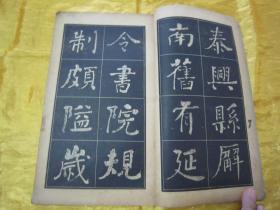 泰興縣廨
南舊有延
令書院規
制頗隘歲